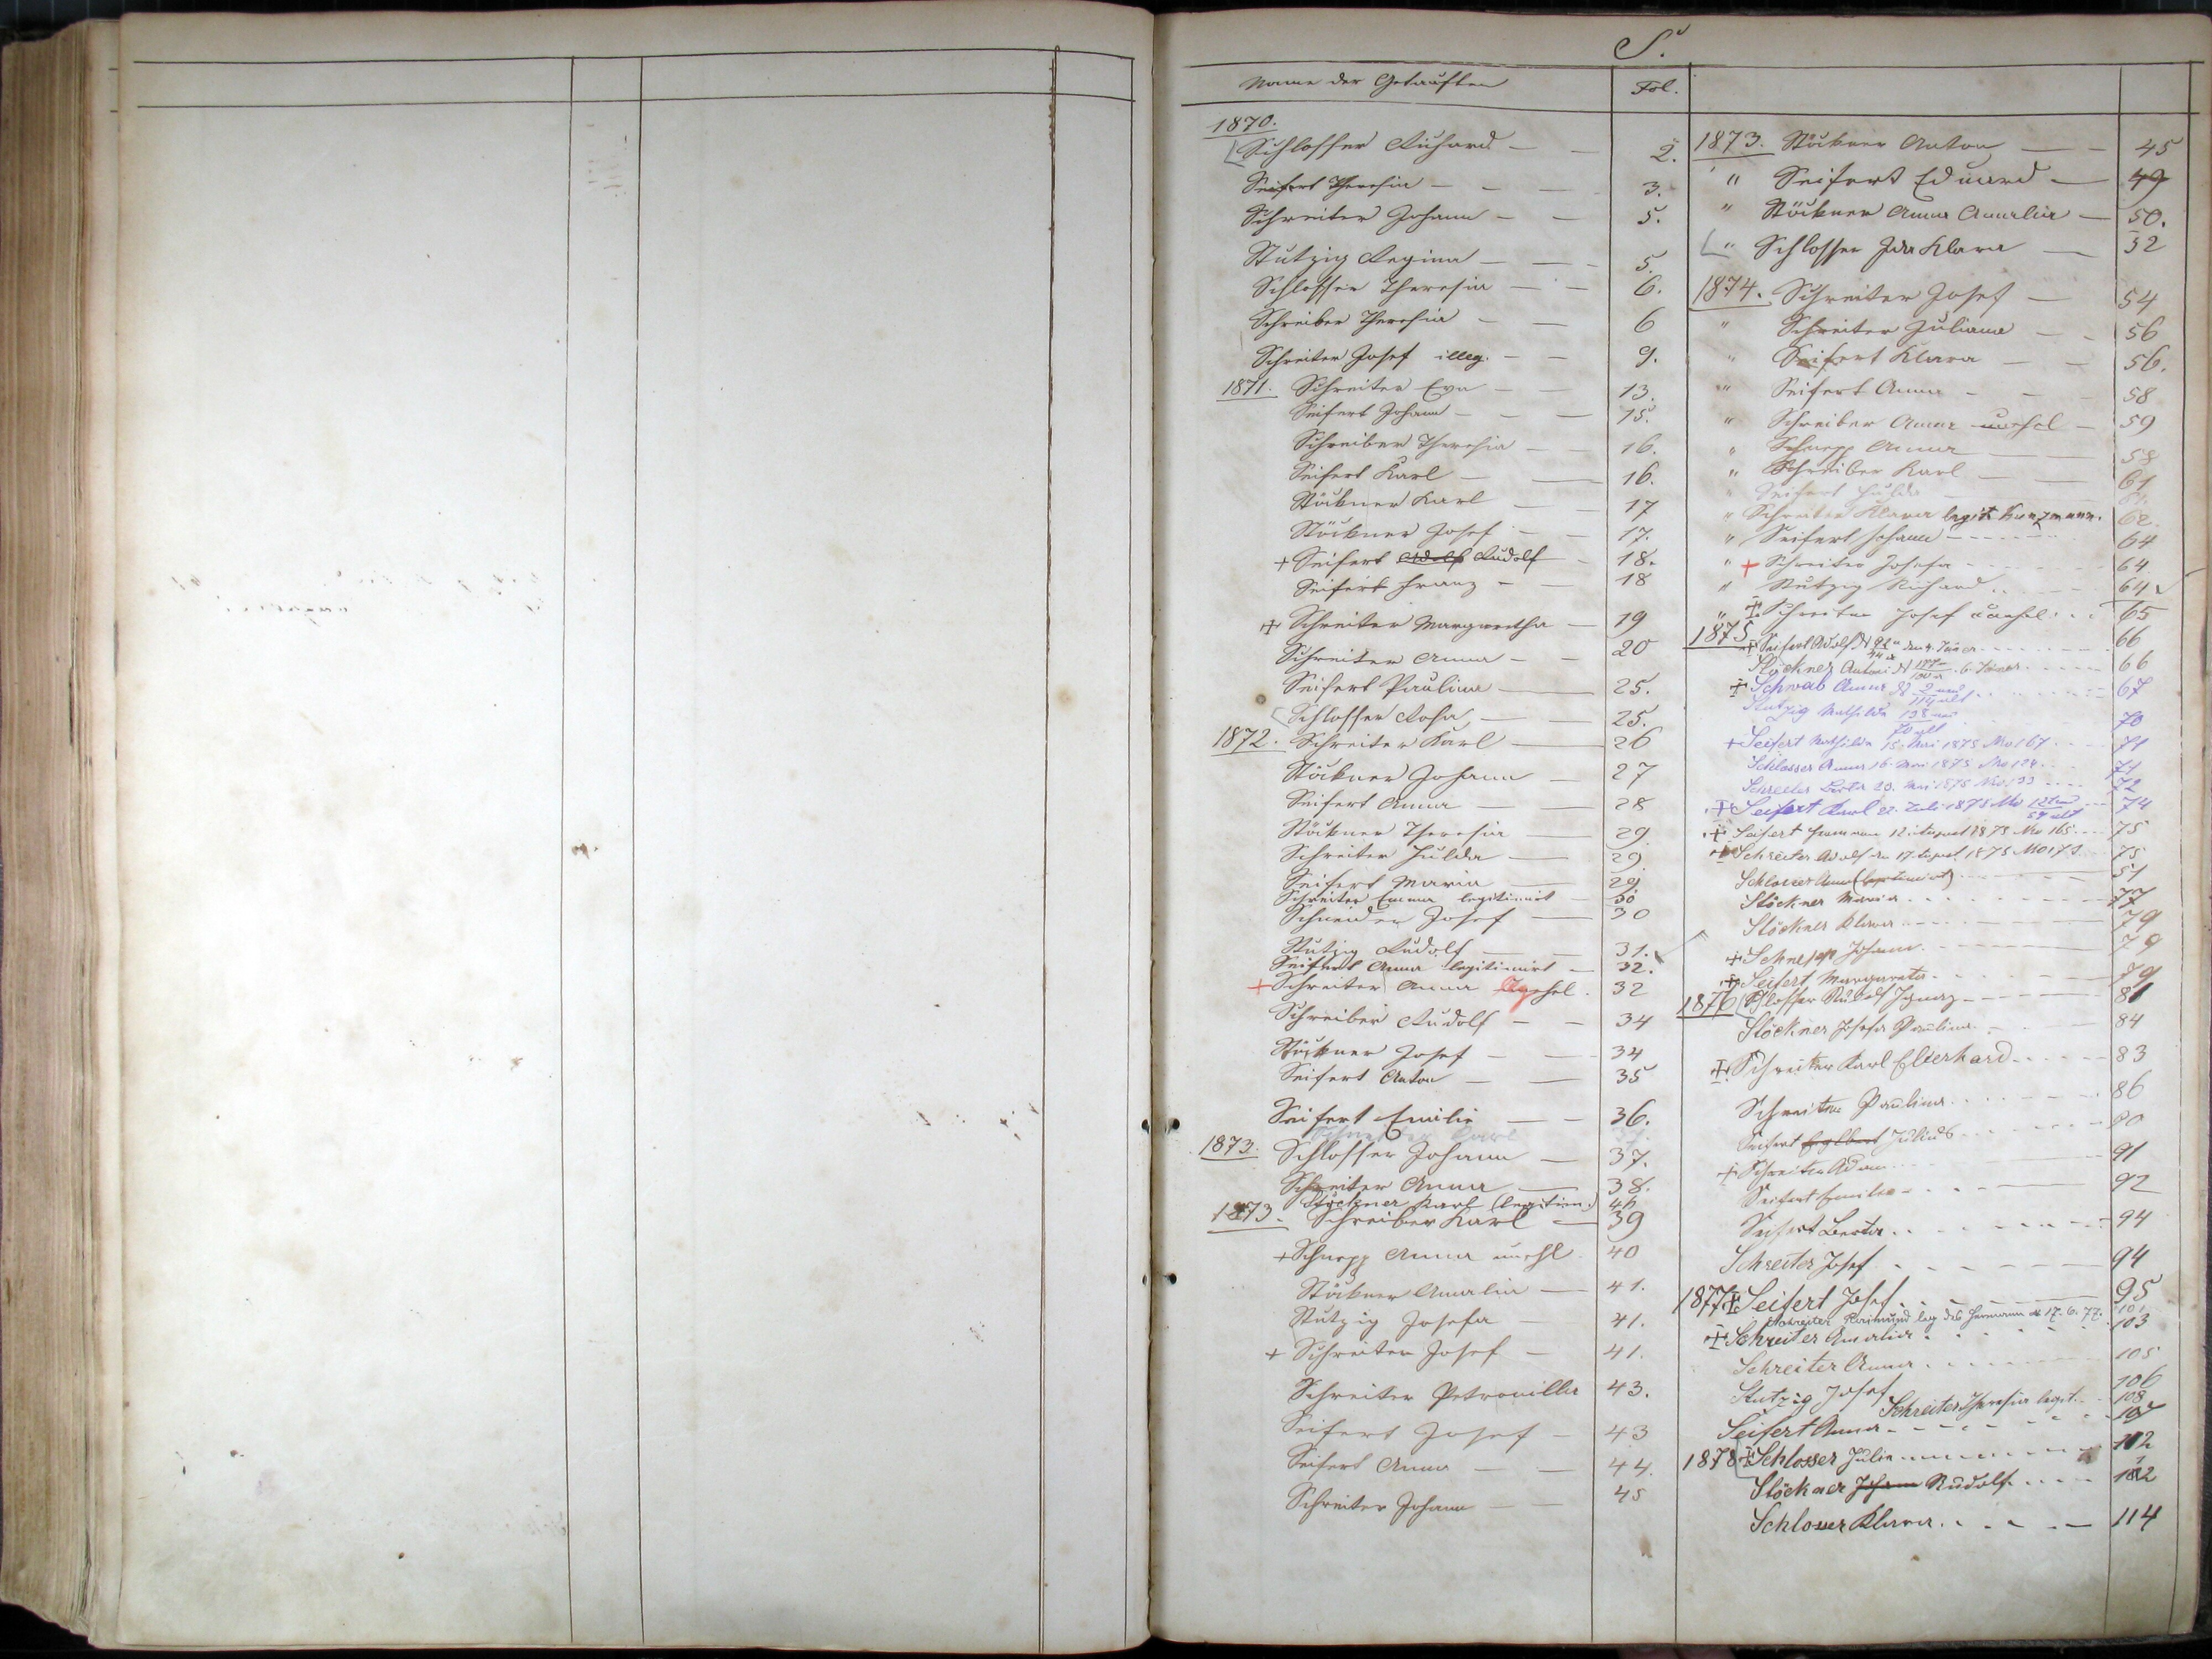 S.
Name der Getauften Fol.
1870.
Schlosser Richard — — 2.
Seifert Theresia — — — 3.
Schreiter Johann — — 5.
Stutzig Regina — — — 5.
Schlosser Theresia — — 6.
Schreiber Theresia — — 6
Schreiter Josef illeg. — — 9.
1871. Schreiter Eva — — 13.
Seifert Johann — — — 15.
Schreiber Theresia — — 16.
Seifert Karl — — 16.
Stöckner Karl — — 17
Stöckner Josef — — 17.
+ Seifert Adolf Rudolf — 18.
Seifert Franz — — 18
+ Schreiter Margaretha — 19
Schreiter Anna — — 20
Seifert Paulina — 25.
Schlosser Rosa — — 25.
1872. Schreiter Karl — 26
Stöckner Johann — 27
Seifert Anna — — 28
Stöckner Theresia — 29
Schreiter Julda — 29
Seifert Maria — 29
Schreiter Emma legitimirt — 30
Schneider Josef — 30
Stutzig Rudolf — — 31.
Seifert Anna legitimirt — 32.
+ Schreiter Anna 32
Schreiber Rudolf — — 34
Stöckner Josef — — 34
Seifert Anton — — 35
Seifert Emilie — — 36.
1873. Schlosser Johann — 37.
Schreiter Anna — 38.
Stöckner Karl (legitim.) 46
1873. Schreiber Karl — 39
+ Schnepp Anna unehl. 40
Stöckner Amalia — 41.
Stutzig Josefa — 41.
+ Schreiter Josef — 41.
Schreiter Petronilla 43.
Seifert Josef — 43
Seifert Anna — — 44.
Schreiter Johann — — 45
1873. Stöckner Anton — — 45
" Seifert Eduard — 49
" Stöckner Anna Amalia — 50.
" Schlosser Ida Klara — 52
1874. Schreiter Josef — 54
" Schreiter Juliana — — 56
" Seifert Klara — — 56.
" Seifert Anna — — — 58
" Schreiber Anna unehel — 59
" Schnepp Anna — — 58
" Schreiber Karl — — 61
" Seifert Hulda — 61.
" Schreiter Klara legit. Kunzmann. 62.
" Seifert Johann — — — 64
" + Schreiter Josefa — — — 64
" Stutzig Richard — — 64
" + Schreiter Josef unehel. . . 65
1875 + Seifert Adolf N den 4. Jäner 66
Stöckner Antoni N 6. Jäner 66
+ Schwab Anna N 2 neu 119 alt 67
Stutzig Mathilda 138 neu 70 alt 70
+ Seifert Mathilda 15. Mai 1875 No 167 71
Schlosser Anna 16. Mai 1875 No 124 71
Schreiter Berta 20. Mai 1875 No 133 72
+ Seifert Karl 22. Juli 1875 No 59 alt 74
+ Seifert Hermann 12. August 1875 No 165 75
+ Schreiter Adolf den 17. August 1875 No 173 75
Schlosser Anna (legitimirt) 51
Stöckner Maria 77
Stöckner Klara 79
+ Schnepp Johann 79
+ Seifert Margareta 79
1876 Schlosser Rudolf Ignaz 81
Stöckner Josefa Paulina 84
+ Schreiter Karl Eberhard 83
Schreiter Paulina 86
Seifert Engelbert Julius 90
+ Schreiter Adam 91
Seifert Emilia 92
Seifert Berta 94
Schreiter Josef 94
1877 + Seifert Josef 95
Schreiter Raimund leg. des Hermann 17. 6. 77. 101
+ Schreiter Amalia 103
Schreiter Anna 105
Stutzig Josef 106
Schreiter Theresia legit. 108
Seifert Anna 107
1878 + Schlosser Julia 112
Stöckner Johann Rudolf 112
Schlosser Klara 114